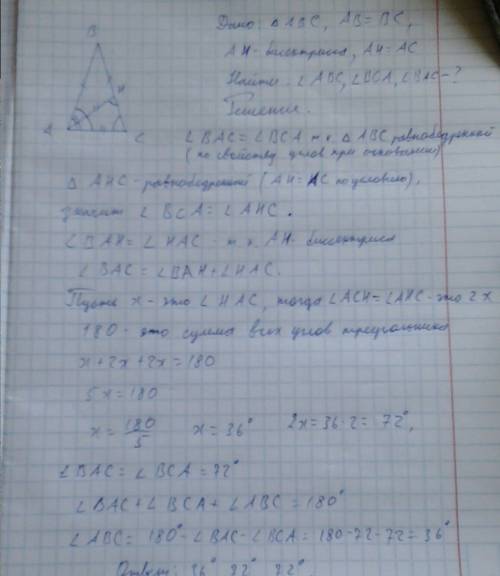 B
H
A
C
Дано: △ABC, AB=BC,
AH-биссектриса, AH=AC
Найти: ∠ABC, ∠BCA, ∠BAC-?
Решение.
∠BAC=∠BCA т.к △ABC равнобедренный
(по свойству углов при основании)
△AHC-равнобедренный (AH=AC по условию),
значит ∠BCA=∠AHC.
∠BAH=∠HAC т.к AH-биссектриса
∠BAC=∠BAH+∠HAC.
Пусть x-это ∠HAC, тогда ∠ACH=∠AHC-это 2x
180-это сумма всех углов треугольника
x+2x+2x=180
5x=180
x=180/5 x=36° 2x=36·2=72°,
∠BAC=∠BCA=72°
∠BAC+∠BCA+∠ABC=180°
∠ABC=180°-∠BAC-∠BCA=180-72-72=36°
Ответ: 36° 72° 72°